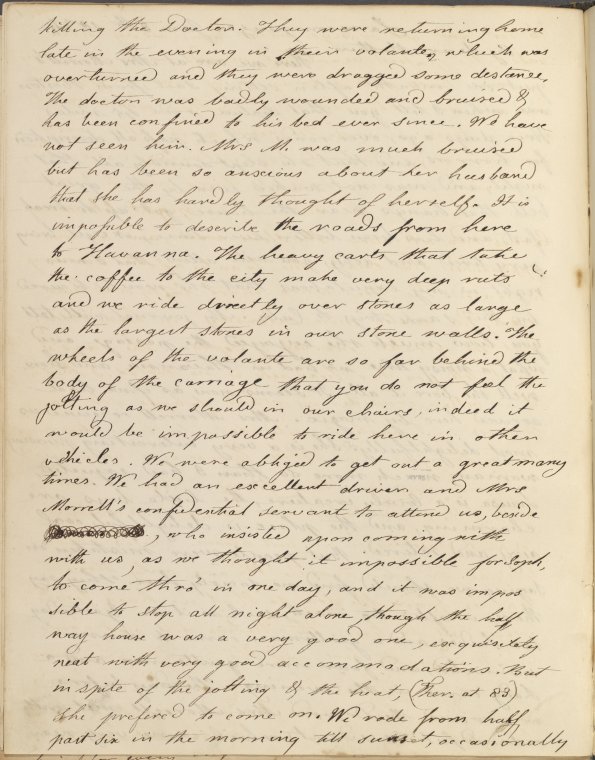 killing the Doctor. They were returning home
late in the evening in their volante, which was
overturned and they were dragged some distance.
The doctor was badly wounded and bruised &
has been confined to his bed ever since. We have
not seen him. Mrs M. was much bruised
but has been so anxious about her husband
that she has hardly thought of herself. It is
impossible to describe the roads from here
to Havanna. The heavy carts that take
the coffee to the city make very deep ruts
and we ride directly over stones as large
as the largest stones in our stone walls. The
wheels of the volante are so far behind the
body of the carriage that you do not feel the
jolting as we should in our chairs, indeed it
would be impossible to ride here in other
vehicles. We were obliged to get out a great many
times. We had an excellent driver and Mrs
Morrell's confidential servant to attend us, beside
, who insisted upon coming with
with us, as we thought it impossible for Soph,
to come thro' in one day, and it was impos
sible to stop all night alone, though the half
way house was a very good one, exquisitely
neat with very good accommodations. But
in spite of the jolting & the heat, (Ther. at 83)
she prefered to come on. We rode from half
past six in the morning till sunset, occasionally